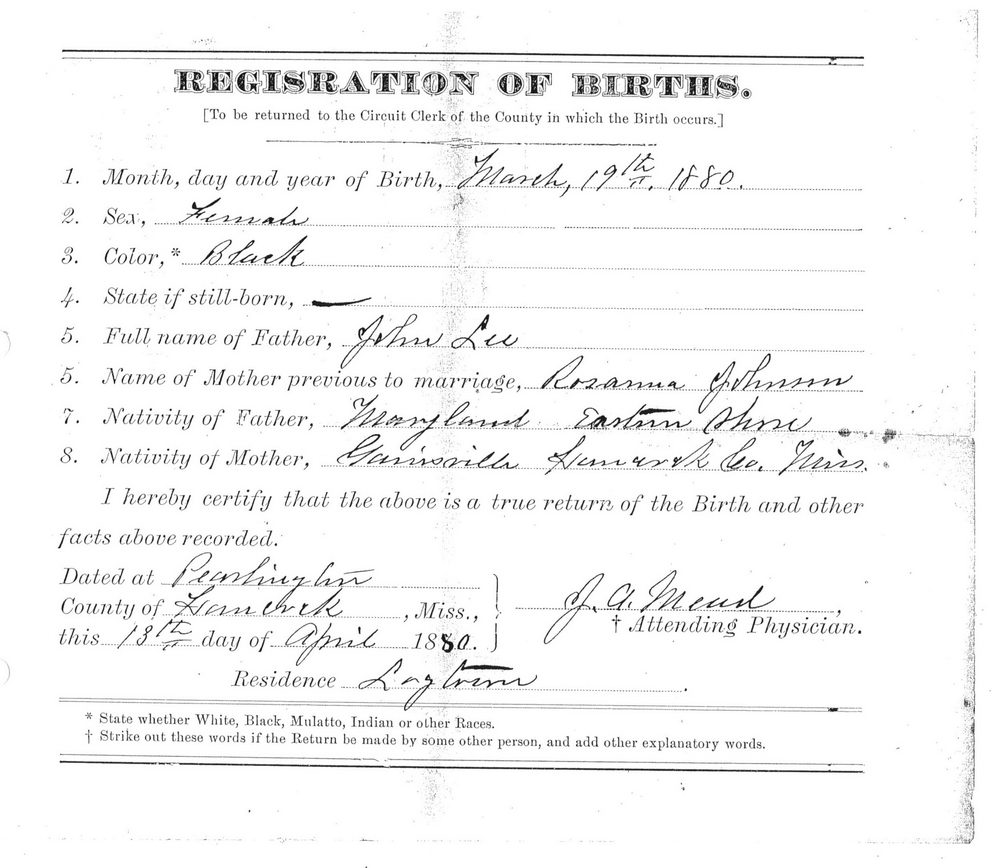 REGISRATION OF BIRTHS.
[To be returned to the Circuit Clerk of the County in which the Birth occurs.]
1. Month, day and year of Birth, March, 19th, 1880.
2. Sex, Female
3. Color,* Black
4. State if still-born, —
5. Full name of Father, John Lee
5. Name of Mother previous to marriage, Rosanna Johnson
7. Nativity of Father, Maryland Eastern Shore
8. Nativity of Mother, Gainsville Hancock Co. Miss.
I hereby certify that the above is a true return of the Birth and other
facts above recorded.
Dated at Pearlington
County of Hancock, Miss.,
this 13th day of April 1880.
J. A. Mead,
† Attending Physician.
Residence Logtown.
* State whether White, Black, Mulatto, Indian or other Races.
† Strike out these words if the Return be made by some other person, and add other explanatory words.